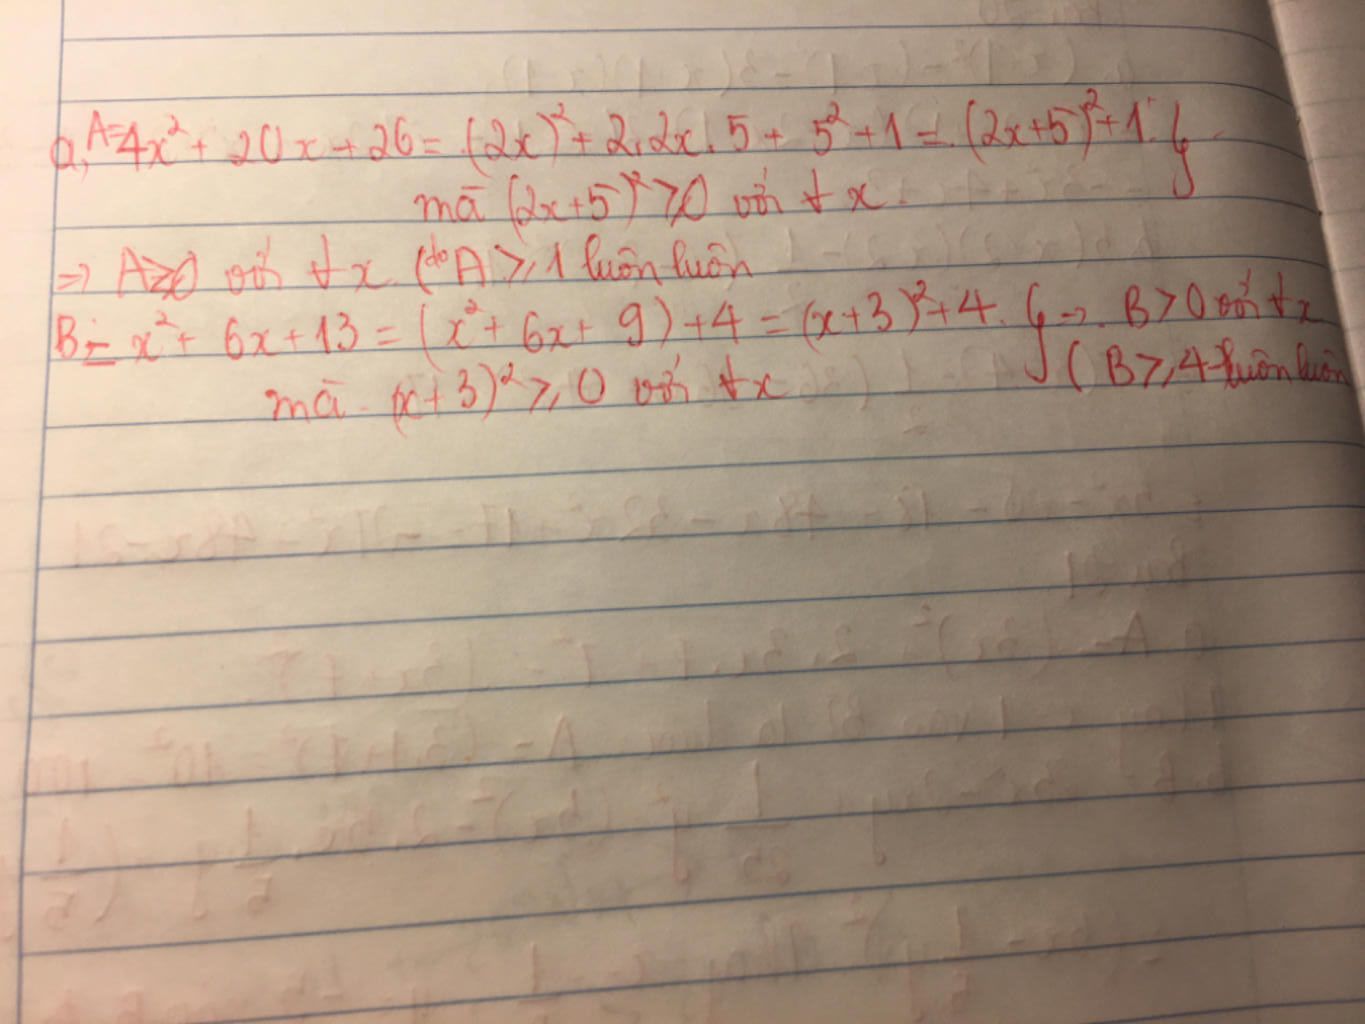 a, A = 4x² + 20x + 26 = (2x)² + 2.2x.5 + 5² + 1 = (2x+5)² + 1. }
mà (2x+5)² ≥ 0 với ∀ x.
=> A ≥ 0 với ∀ x (do A ≥ 1 luôn luôn
B = x² + 6x + 13 = (x² + 6x + 9) + 4 = (x+3)² + 4. } => B > 0 với ∀ x
mà (x+3)² ≥ 0 với ∀ x (B ≥ 4 luôn luôn